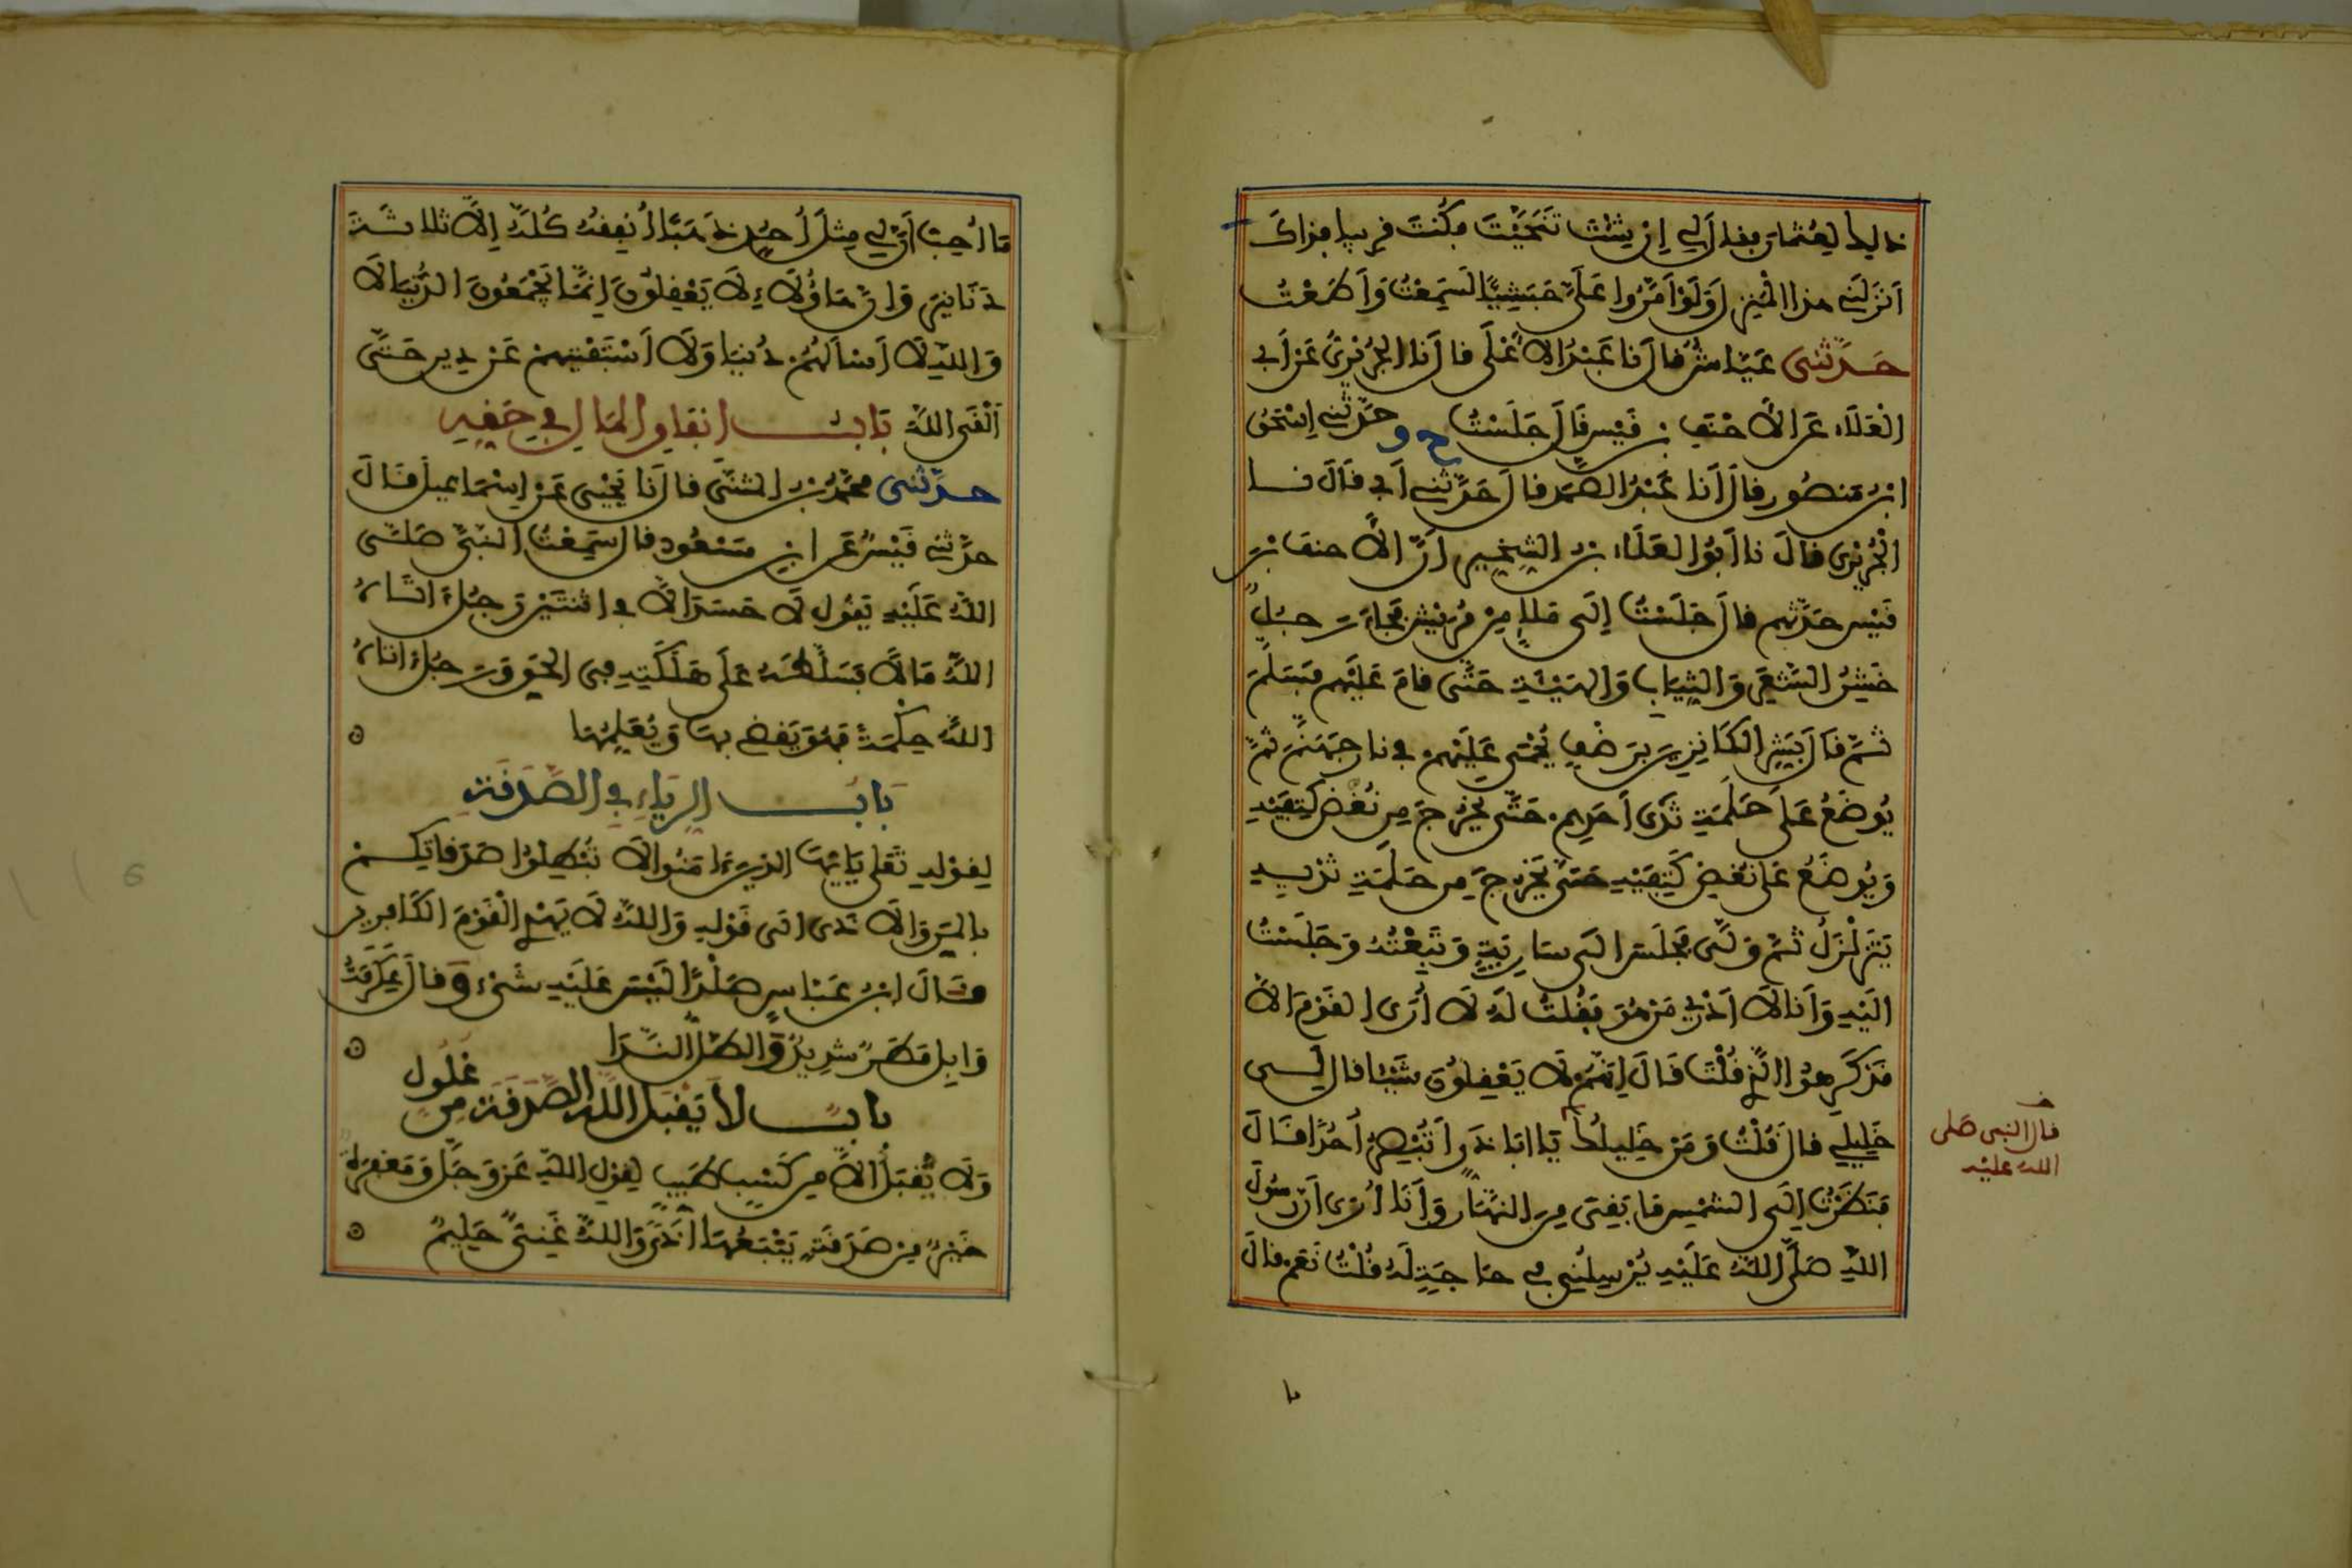 ذلك لعثمان فقال لي إن شئت تنحيت فكنت قريبا فذاك
أنزلني هذا المنزل ولو أمروا علي حبشيا لسمعت وأطعت
حدثني عياش قال نا عبد الأعلى قال نا الجريري عن أبي
العلاء عن الأحنف بن قيس قال جلست ح و حدثني إسحق
ابن منصور قال أنا عبد الصمد قال حدثني أبي قال نا
الجريري قال نا أبو العلاء بن الشخير أن الأحنف بن
قيس حدثهم قال جلست إلى ملإ من قريش فجاء رجل
خشن الشعر والثياب والهيئة حتى قام عليهم فسلم
ثم قال بشر الكانزين برضف يحمى عليهم في نار جهنم ثم
يوضع على حلمة ثدي أحدهم حتى يخرج من نغض كتفيه
ويوضع على نغض كتفيه حتى يخرج من حلمة ثديه
يتزلزل ثم ولى فجلس إلى سارية وتبعته وجلست
إليه وأنا لا أدري من هو فقلت له لا أرى القوم إلا
قد كرهوا الذي قلت قال إنهم لا يعقلون شيئا قال لي
خليلي قال قلت ومن خليلك يا أبا ذر أتبصر أحدا قال
قال النبي صلى
الله عليه
فنظرت إلى الشمس ما بقي من النهار وأنا أرى أن رسول
الله صلى الله عليه يرسلني في حاجة له قلت نعم قال
ما أحب أن لي مثل أحد ذهبا أنفقه كله إلا ثلاثة
دنانير وإن هاؤلاء لا يعقلون إنما يجمعون الدنيا لا
والله لا أسألهم دنيا ولا أستفتيهم عن دين حتى
ألقى الله باب إنفاق المال في حقه
حدثني محمد بن المثنى قال نا يحيى عن إسماعيل قال
حدثني قيس عن ابن مسعود قال سمعت النبي صلى
الله عليه يقول لا حسد إلا في اثنتين رجل آتاه
الله مالا فسلطه على هلكته في الحق ورجل آتاه
الله حكمة فهو يقضي بها ويعلمها
باب الرياء في الصدقة
لقوله تعلى يا أيها الذين ءامنوا لا تبطلوا صدقاتكم
بالمن والأذى إلى قوله والله لا يهدي القوم الكافرين
وقال ابن عباس صلدا ليس عليه شيء وقال عكرمة
وابل مطر شديد والطل الندا
باب لا يقبل الله الصدقة من غلول
ولا يقبل إلا من كسب طيب لقول الله عز وجل ومغفرة
خير من صدقة يتبعها أذى والله غني حليم